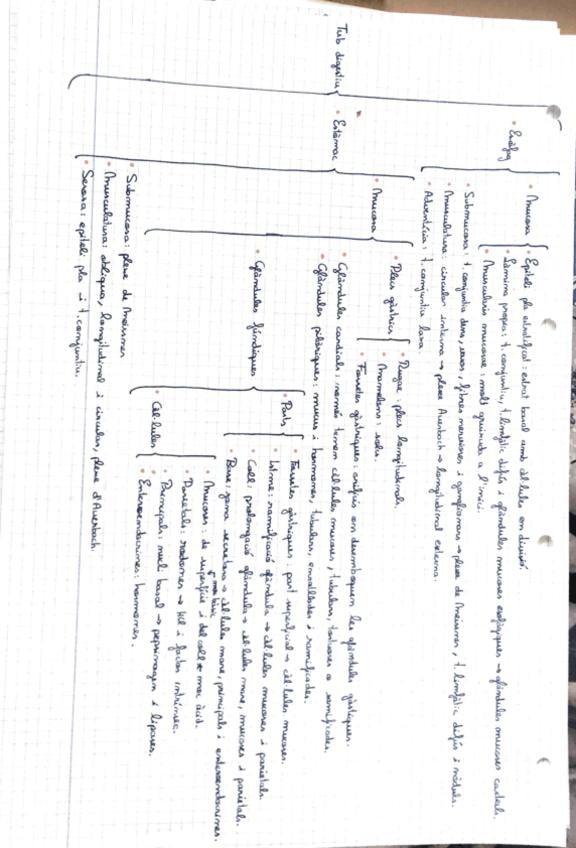 Tub digestiu
• Esòfag
• Mucosa
• Epiteli pla estratificat: estrat basal amb cèl·lules en divisió.
• Làmina pròpia: t. conjuntiu, t. limfàtic difús i glàndules mucoses esofàgiques → glàndules mucoses cardials.
• Muscularis mucosae: molt gruixuda a l'inici.
• Submucosa: t. conjuntiu dens, vasos, fibres nervioses i ganglionars → plexe de Meissner, t. limfàtic difús i nòduls.
• Musculatura: circular interna → plexe Auerbach → longitudinal externa.
• Adventícia: t. conjuntiu laxa
• Estómac
• Mucosa
• Plecs gàstrics
• Rugae: plecs longitudinals.
• Mamelons: solcs.
• Fossetes gàstriques: orificis on desemboquen les glàndules gàstriques.
• Glàndules cardials: només tenen cèl·lules mucoses, tubulars, tortuoses o ramificades.
• Glàndules pilòriques: mucus i hormones, tubulars, enrotllades i ramificades.
• Glàndules fúndiques
• Parts
• Fossetes gàstriques: part superficial → cèl·lules mucoses.
• Istme: ramificació glàndula → cèl·lules mucoses i parietals.
• Coll: prolongació glàndula → cèl·lules mare, mucoses i parietals.
• Base: zona secretora → cèl·lules mare, principals i enteroendocrines.
• Cèl·lules
• Mucoses: de superfície i del coll → moc àcid.
↳ moc bàsic
• Parietals: rodones → HCl i factor intrínsec.
• Principals: nucli basal → pepsinogen i lipases.
• Enteroendocrines: hormones.
• Submucosa: plexe de Meissner
• Musculatura: obliqua, longitudinal i circular, plexe d'Auerbach.
• Serosa: epiteli pla i t. conjuntiu.